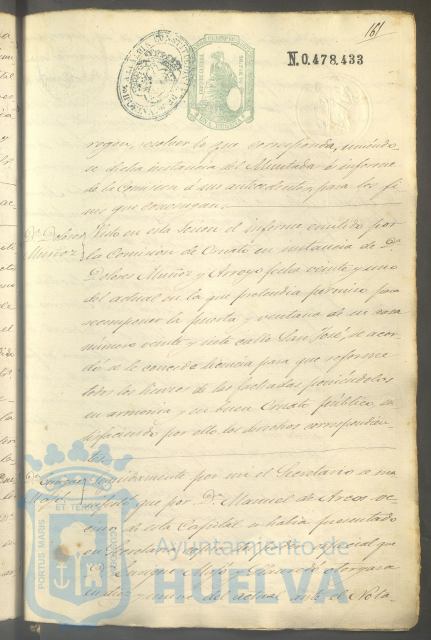 161
N.0.478.433
rogan, resolver lo que corresponda, uniéndo
se dicha instancia del Alumbrado é informe
de la Comision á sus antecedentes para los fi
nes que convengan.
Dª Dolores Visto en esta sesion el informe emitido por
Muñoz la Comisión de Ornato en instancia de Dª
Dolores Muñoz y Arroyo fecha veinte y uno
del actual en la que pretendia permiso para
recomponer la puerta y ventana de su casa
número veinte y siete calle San José, se acor
dó se le conceda licencia para que reforme
todos los huecos de las fachadas poniéndolos
en armonia y en buen Ornato público, sa
tisfaciendo por ello los derechos correspondien
tes.
Seguidamente por mi el Secretario se ma
nifestó que por Dn Manuel de Arcos ve
cino de esta Capital se habia presentado
en Secretaria especial que
otorgara
en diez y nueve del actual ante el Nota-
Ayuntamiento de
HUELVA
PORTUS MARIS ET TERRÆ